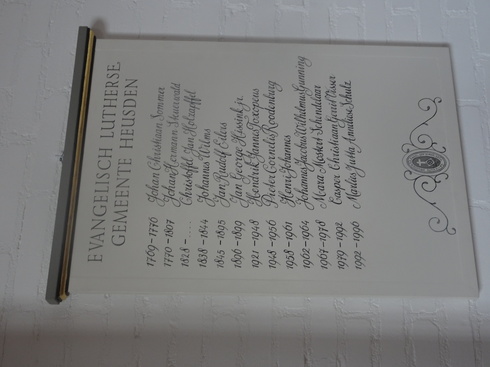 EVANGELISCH LUTHERSE
GEMEENTE HEUSDEN
1769-1770 Johan Christiaan Sommer
1770-1807 Johan Hermann Skauerwald
1828-.... Christoffel Jan Holtzapffel
1838-1844 Johannes Wilms
1845-1895 Jan Rudolf Eilers
1896-1899 Jan George Hessink jr.
1921-1948 Hendrik Glennis
1948-1956 Pieter Cornelis Roodenburg
1958-1961 Henri Johannes
1962-1964 Johannes Jacobus Wilhelmus Gunning
1967-1978 Mara Mostert Schendelaar
1979-1992 Casper Christiaan Gerrit Visser
1992-1996 Marlies Jutta Amalia Schulz